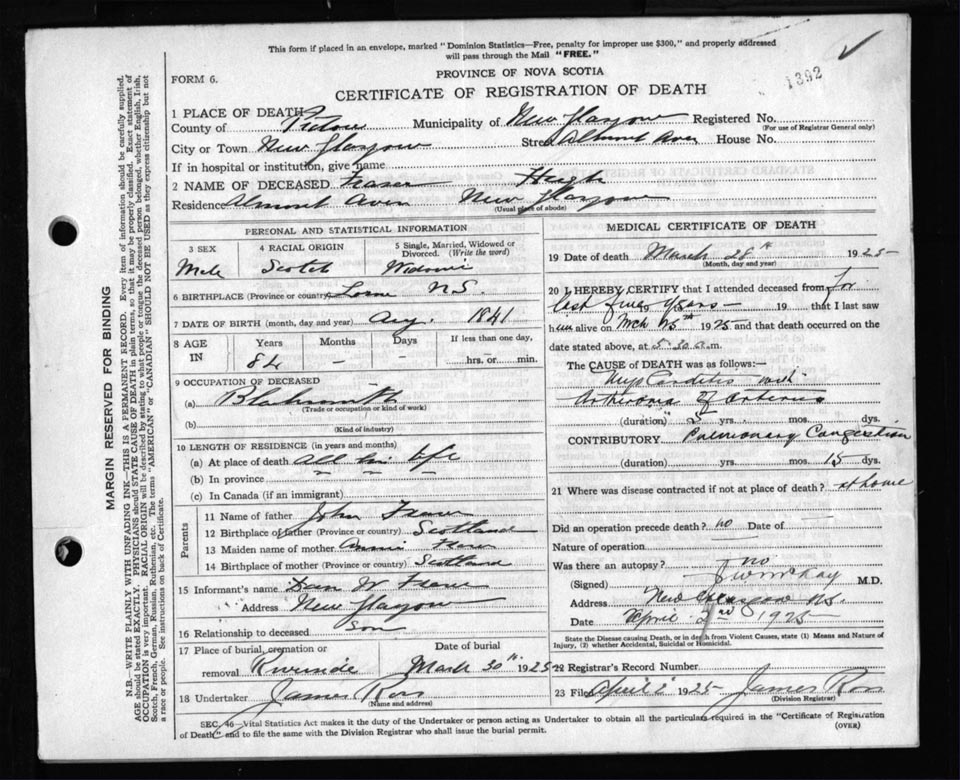 This form if placed in an envelope, marked "Dominion Statistics—Free, penalty for improper use $300," and properly addressed
will pass through the Mail "FREE."
1392
FORM 6.
PROVINCE OF NOVA SCOTIA
CERTIFICATE OF REGISTRATION OF DEATH
1 PLACE OF DEATH
County of Pictou Municipality of New Glasgow Registered No.
(For use of Registrar General only)
City or Town New Glasgow Street Almont Aven House No.
If in hospital or institution, give name
2 NAME OF DECEASED Fraser Hugh
Residence Almont Aven New Glasgow
(Usual place of abode)
PERSONAL AND STATISTICAL INFORMATION
3 SEX 4 RACIAL ORIGIN 5 Single, Married, Widowed or Divorced. (Write the word)
Male Scotch
6 BIRTHPLACE (Province or country) Lorne N.S.
7 DATE OF BIRTH (month, day and year) Aug. 1841
8 AGE IN Years Months Days If less than one day,
84 — — hrs. or min.
9 OCCUPATION OF DECEASED
(a) Blacksmith
(Trade or occupation or kind of work)
(b)
(Kind of industry)
10 LENGTH OF RESIDENCE (in years and months)
(a) At place of death all his life
(b) In province
(c) In Canada (if an immigrant)
Parents
11 Name of father John Fraser
12 Birthplace of father (Province or country) Scotland
13 Maiden name of mother Annie Fraser
14 Birthplace of mother (Province or country) Scotland
15 Informant's name W Fraser
Address New Glasgow
16 Relationship to deceased Son
17 Place of burial, cremation or removal Date of burial
Riverside March 30th 1925
18 Undertaker James Ross
(Name and address)
MEDICAL CERTIFICATE OF DEATH
19 Date of death March 28th 1925
(Month, day and year)
20 I HEREBY CERTIFY that I attended deceased from for
last five years — 19 that I last saw
him alive on Mch 25th 1925 and that death occurred on
date stated above, at 5.30 a.m.
The CAUSE OF DEATH was as follows:—
Myocarditis with
Atheroma of Arteries
(duration) 5 yrs. mos. dys.
CONTRIBUTORY Pulmonary Congestion
(duration) yrs. mos. 15 dys.
21 Where was disease contracted if not at place of death? at home
Did an operation precede death? no Date of —
Nature of operation
Was there an autopsy? no
(Signed) J W McKay M.D.
Address New Glasgow N.S.
Date April 2nd 1925
State the Disease causing Death, or in death from Violent Causes, state (1) Means and Nature of
Injury, (2) whether Accidental, Suicidal or Homicidal.
22 Registrar's Record Number
23 Filed April 2 1925 James Ross
(Division Registrar)
SEC. 46—Vital Statistics Act makes it the duty of the Undertaker or person acting as Undertaker to obtain all the particulars required in the "Certificate of Registration
of Death" and to file the same with the Division Registrar who shall issue the burial permit.
(OVER)
MARGIN RESERVED FOR BINDING
N.B.—WRITE PLAINLY WITH UNFADING INK—THIS IS A PERMANENT RECORD. Every item of information should be carefully supplied.
AGE should be stated EXACTLY. PHYSICIANS should STATE CAUSE OF DEATH in plain terms, so that it may be properly classified. Exact statement of
OCCUPATION is very important. RACIAL ORIGIN will be described by stating to what people or tongue the deceased person belonged, whether English, Irish,
Scotch, French, German, Russian, Ruthenian, etc. The terms "AMERICAN" or "CANADIAN" SHOULD NOT BE USED as they express citizenship but not
a race or people. See instructions on back of Certificate.